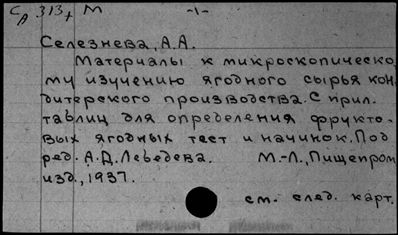 СА 313+ М -1-
Селезнева, А.А.
Материалы к микроскопическо
му изучению ягодного сырья кон
дитерского производства. С прил.
таблиц для определения фрукто-
вых ягодных тест и начинок. Под
ред. А.Д. Лебедева. М.-Л., Пищепром
изд., 1937.
см. след. карт.